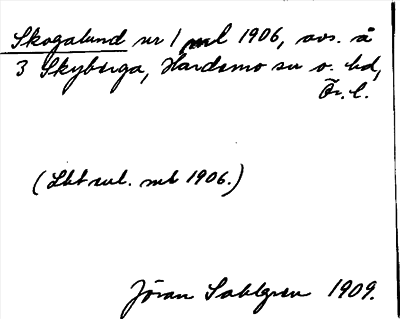 Skogalund nr 1 ml 1906, avs. å
3 Skyberga, Hardemo sn o. hd,
Ör. l.
(Lbt rul. mb 1906.)
Jöran Sahlgren 1909.